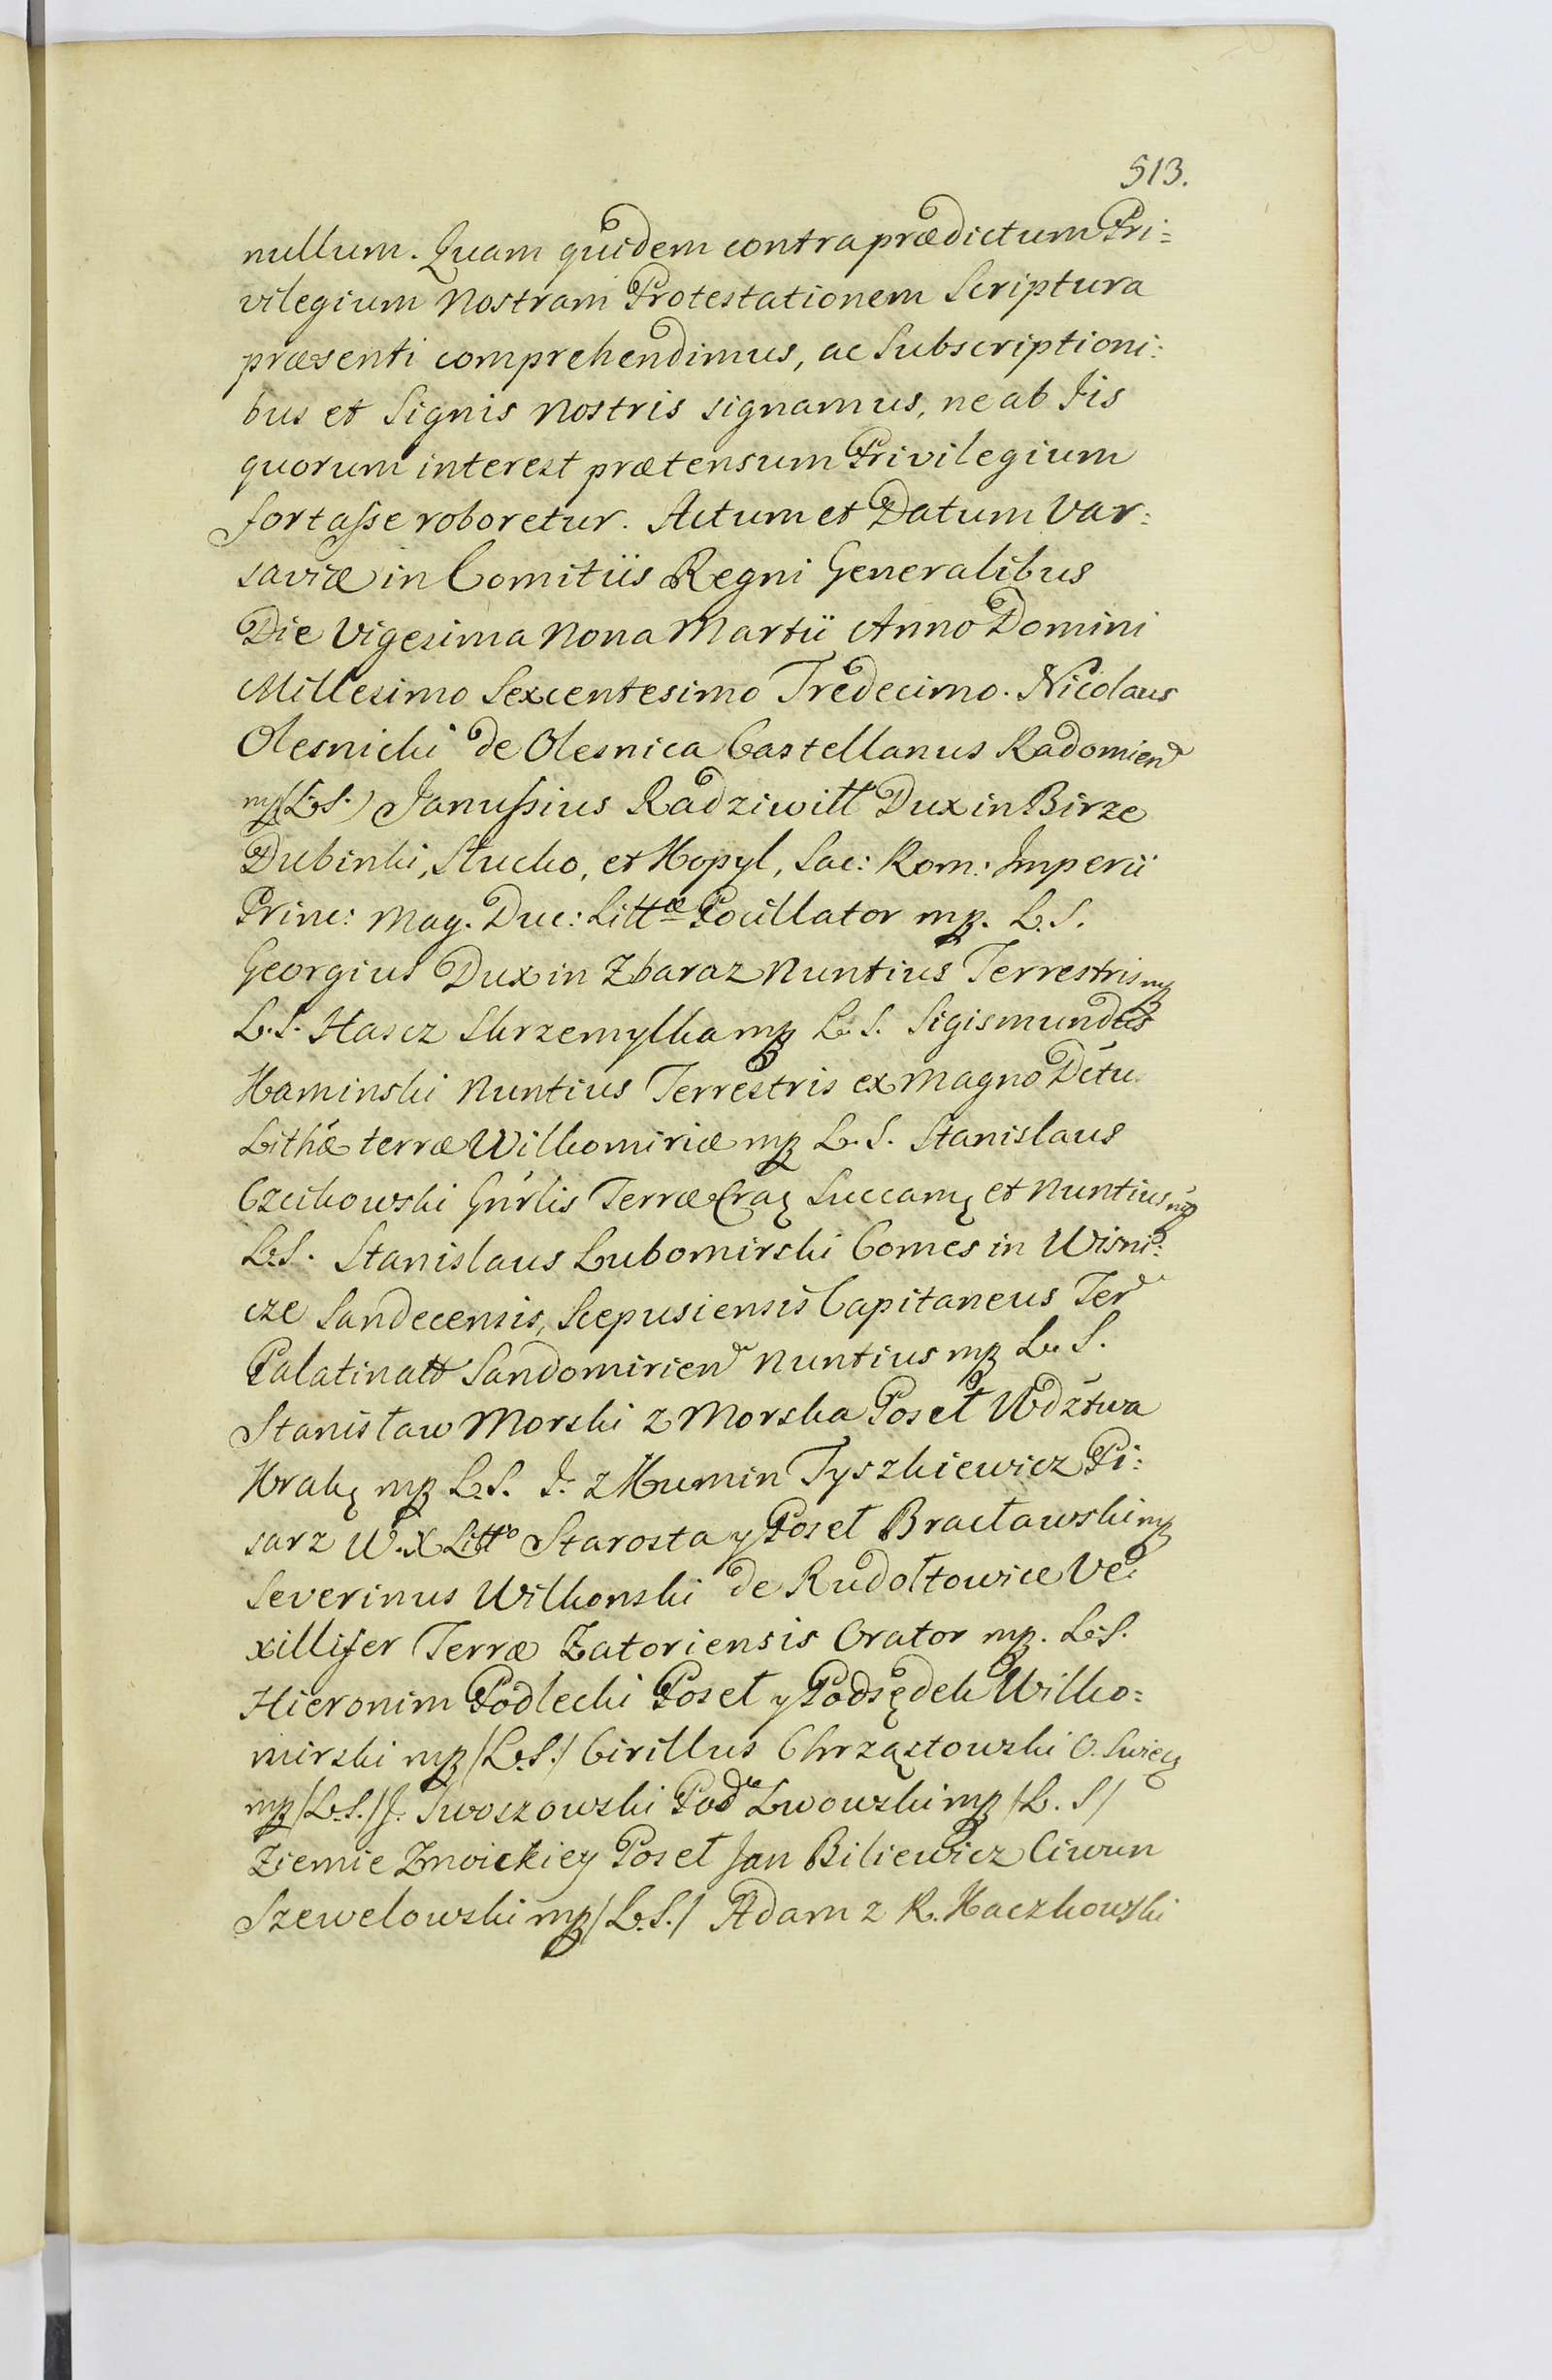 513.
nullum. Quam quidem contra prædictum Pri=
vilegium Nostram Protestationem Scriptura
præsenti comprehendimus, ac Subscriptioni:
bus et Signis Nostris signamus, ne ab Iis
quorum interest prætensum Privilegium
fortasse roboretur. Actum et Datum Var:
saviæ in Comitiis Regni Generalibus
Die Vigesima Nona Martii Anno Domini
Millesimo Sexcentesimo Tredecimo. Nicolaus
Olesnicki de Olesnica Castellanus Radomien
mp (L.S.) Janussius Radziwiłł Dux in Birze
Dubinki, Slucko, et Kopyl, Sac: Rom: Imperii
Princ: Mag. Duc: Littæ Pocillator mp. L.S.
Georgius Dux in Zbaraz Nuntius Terrestris mp
L.S. Hascz Skrzemylka mp L.S. Sigismundus
Kaminski Nuntius Terrestris ex Magno Dctu
Lithæ terræ Wilkomiriæ mp L.S. Stanislaus
Czeikowski Gnrlis Terræ Succam et Nuntius mp
L.S. Stanislaus Lubomirski Comes in Wisni:
cze Sandecensis, Scepusiensis Capitaneus Ter
Palatinatt Sandomirien Nuntius mp L.S.
Stanisław Morski z Morska Poseł Wdztwa
Krak mp L.S. J. z Kumin Tyszkiewicz Pi:
sarz W.X Litto Starosta y Poseł Bracławski mp
Severinus Wilkonski de Rudołtowice Ve:
xillifer Terræ Zatoriensis Orator mp. L.S.
Hieronim Podlecki Poseł y Podsędek Wilko=
mirski mp /L.S./ Cirillus Chrząstowski O. Swięc
mp /L.S./ J. Swoszowski Pod Lwowski mp /L.S/
Ziemie Zmoickiey Poseł Jan Biliewicz Ciwun
Szewelowski mp /L.S./ Adam z K. Kaczkowski